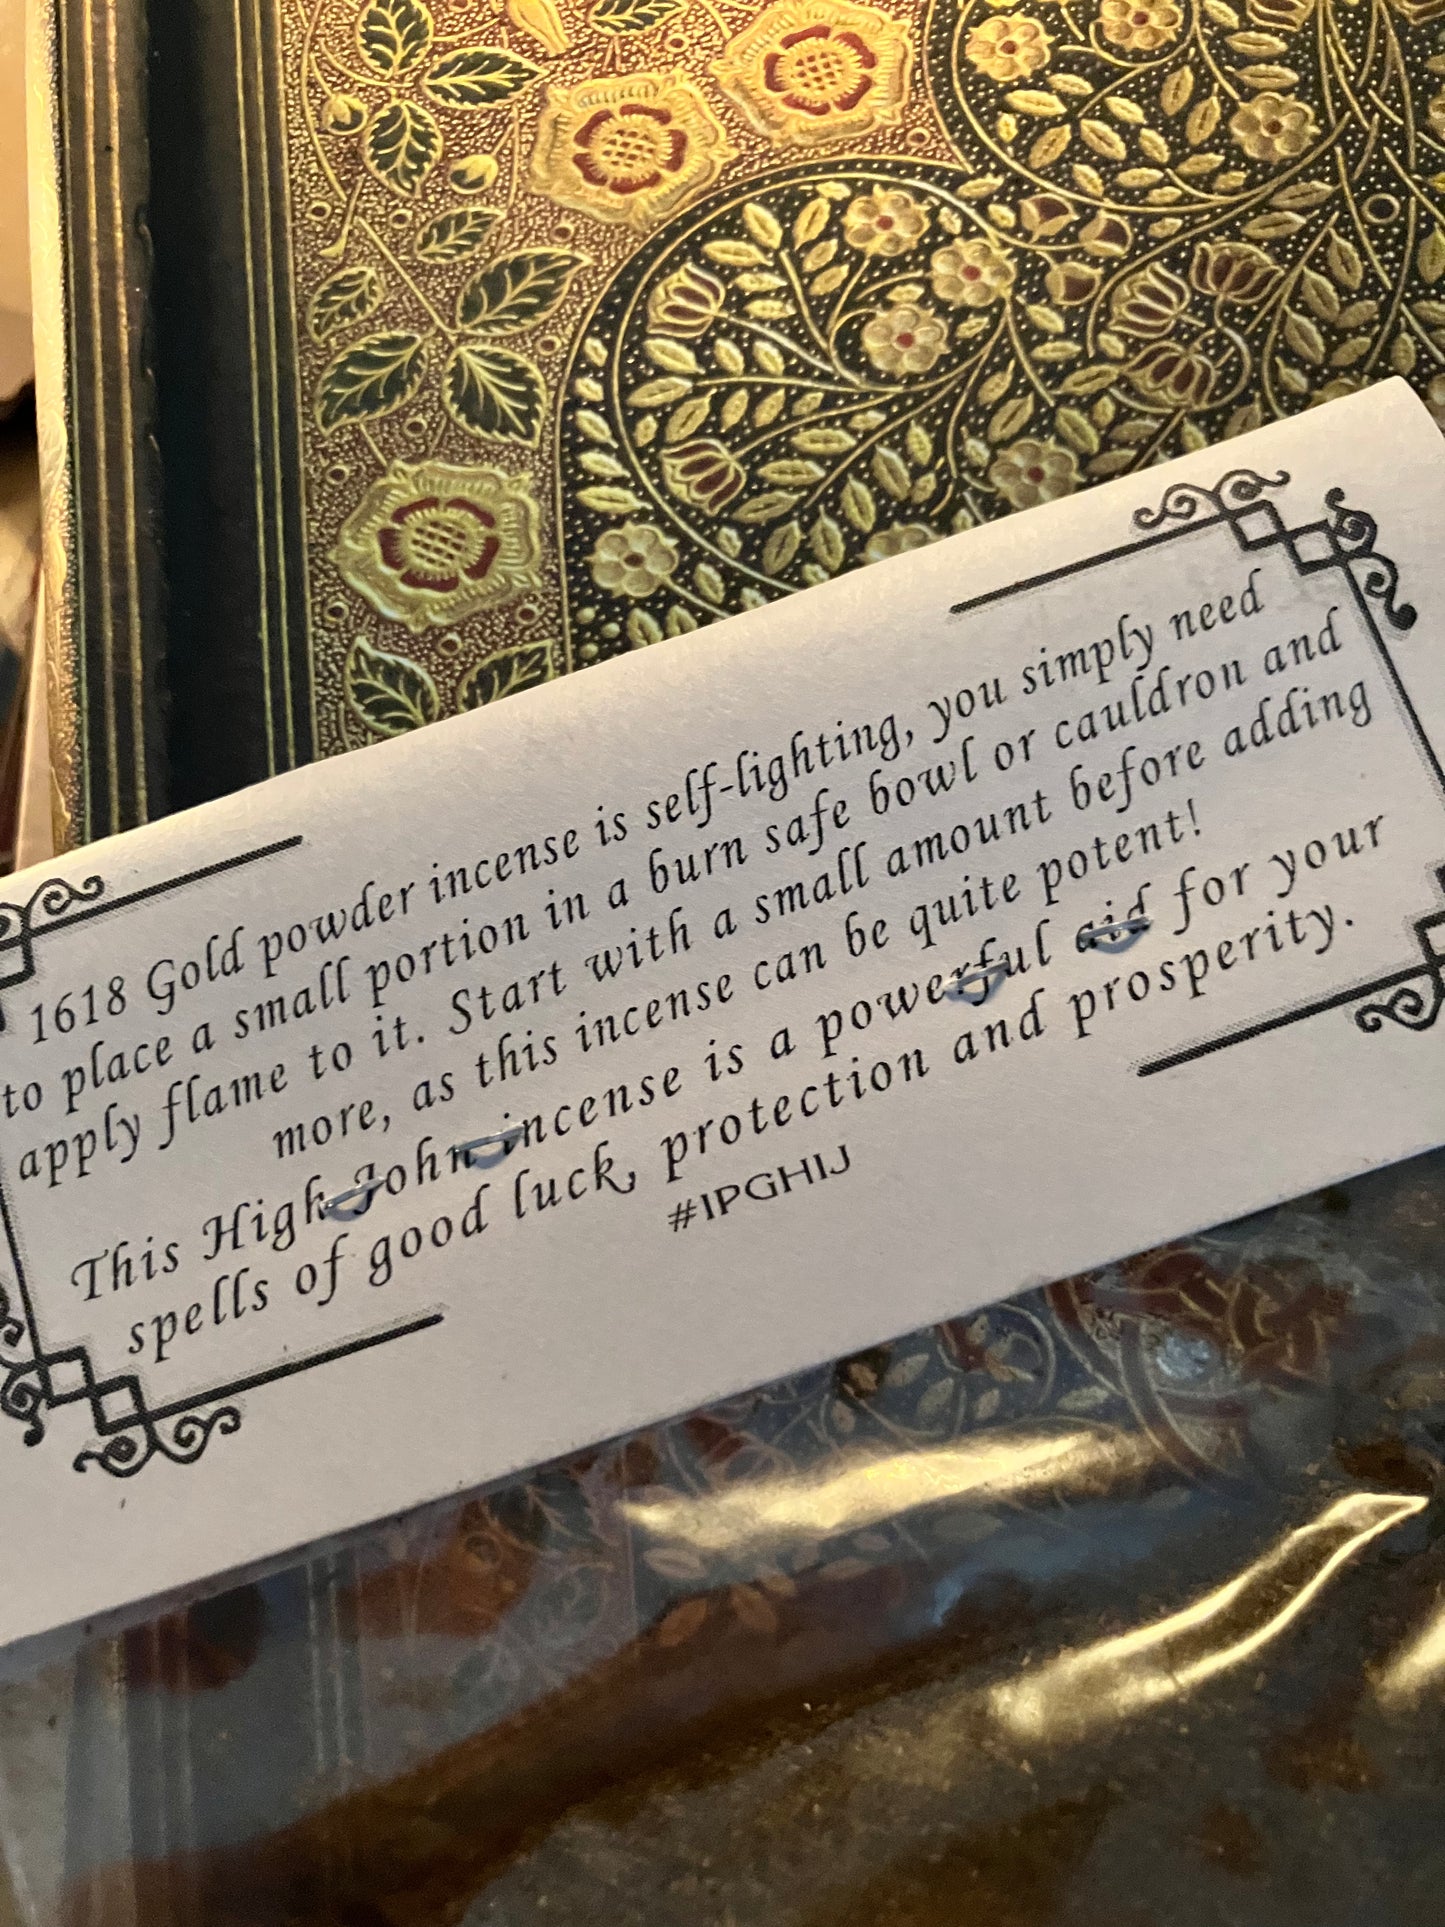 1618 Gold powder incense is self-lighting, you simply need
to place a small portion in a burn safe bowl or cauldron and
apply flame to it. Start with a small amount before adding
more, as this incense can be quite potent!
This High John incense is a powerful aid for your
spells of good luck, protection and prosperity.
#IPGHIJ